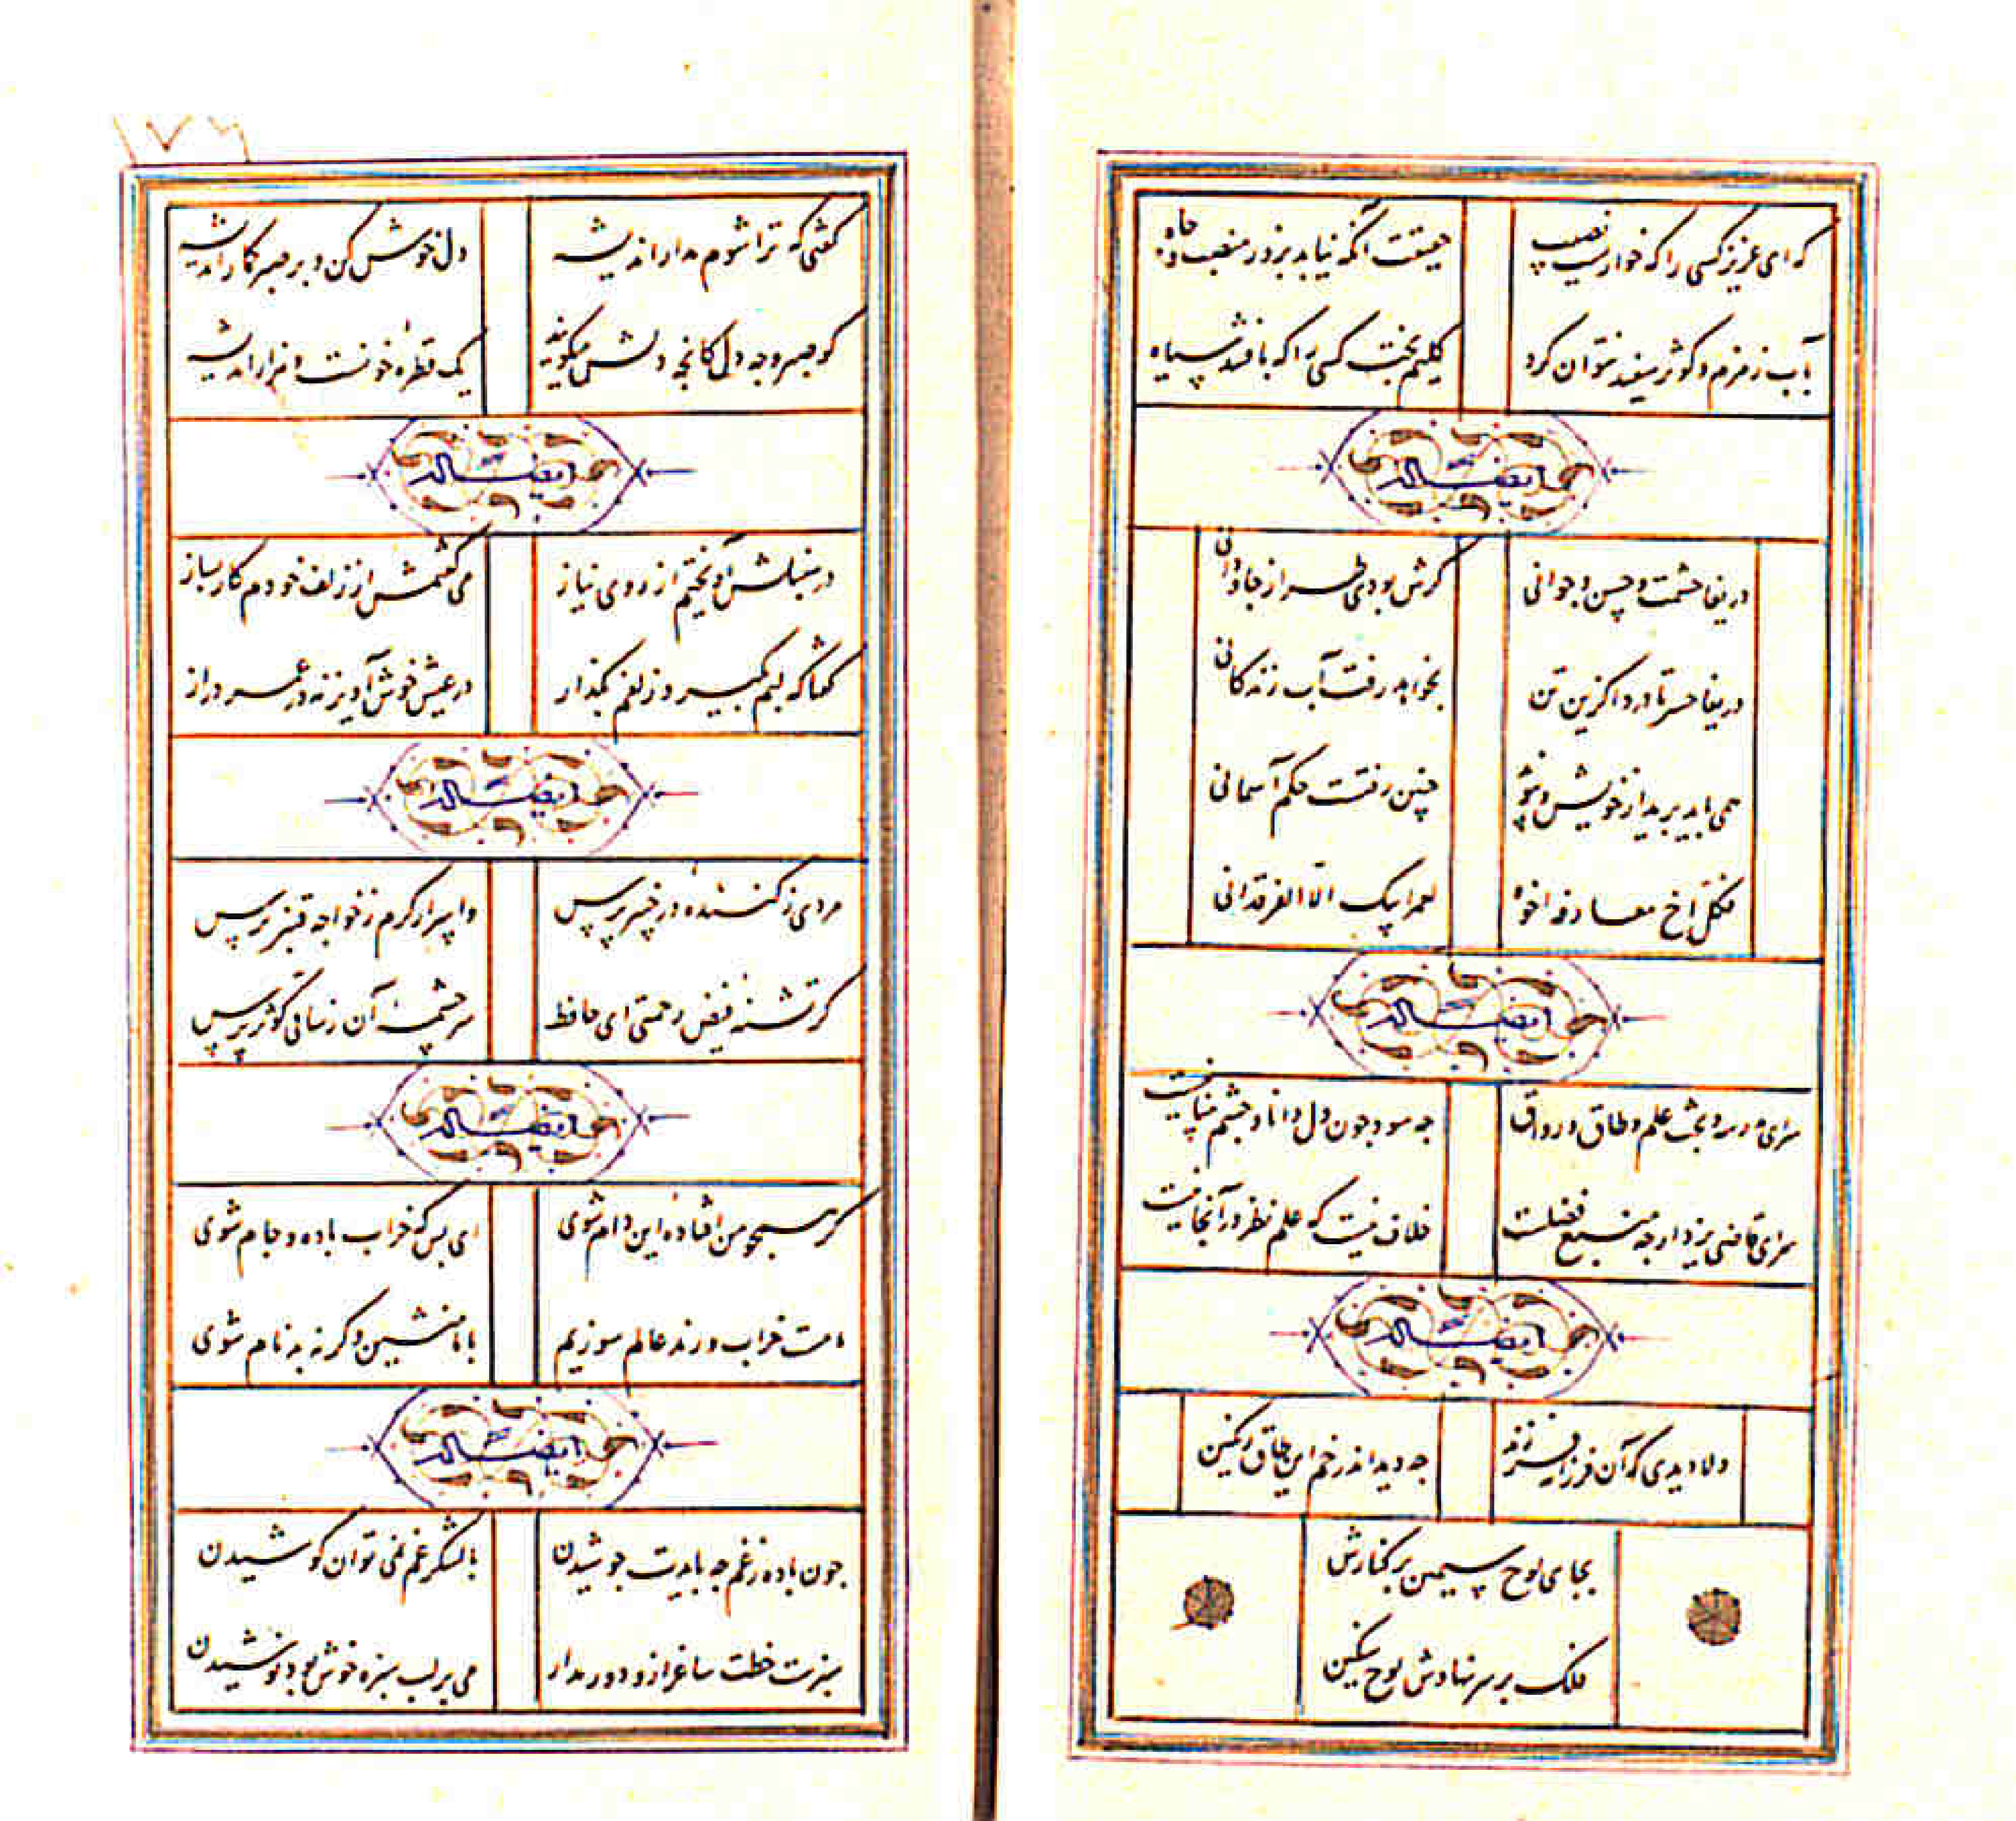 که ای عزیز کسی را که خواریست نصیب
حقیقت آنکه نیابد بزور منصب و جاه
بآب زمزم و کوثر سفید نتوان کرد
کلیم بخت کسی را که بافتند سیاه
ایضاله
دریغا حشمت و حسن و جوانی
کرش بودی طراز جاودانی
دریغا حسرتا دردا کزین تن
بخواهد رفت آب زندکانی
همی باید برید از خویش و پیوند
چنین رفتست حکم آسمانی
فکل اخ مفارقه اخوه
لعمر ابیک الا الفرقدانی
ایضاله
سرای مدرسه و بحث علم و طاق و رواق
چه سود چون دل دانا و چشم بینا نیست
سرای قاضی یزد ارچه منبع فضلست
خلاف نیست که علم نظر در آنجا نیست
ایضاله
دلا دیدی که آن فرزانه فرزند
چه دید اندر خم این طاق رنکین
بجای لوح سیمین بر کنارش
فلک بر سر نهادش لوح سنکین
گفتی که ترا شوم مدار اندیشه
دل خوش کن و بر صبر کار اندیشه
کو صبر و چه دل کانچه دلش میکویند
یک قطره خونست و هزار اندیشه
ایضاله
در سنبلش آویختم از روی نیاز
می کفتمش از زلف خودم کار بساز
کفتا که لبم بکیر و زلفم بکذار
در عیش خوش آویز نه در عمر دراز
ایضاله
مردی ز کننده در خیبر پرس
و اسرار کرم ز خواجه قنبر پرس
کر تشنه فیض رحمتی ای حافظ
سرچشمه آن ز ساقی کوثر پرس
ایضاله
کر همچو من افتاده این دام شوی
ای بس که خراب باده و جام شوی
ما مست خراب و رند عالم سوزیم
با ما منشین وکرنه بدنام شوی
ایضاله
چون باده ز غم چه بایدت جوشیدن
با لشکر غم نمی توان کوشیدن
سبزست خطت ساغر ازو دور مدار
می بر لب سبزه خوش بود نوشیدن